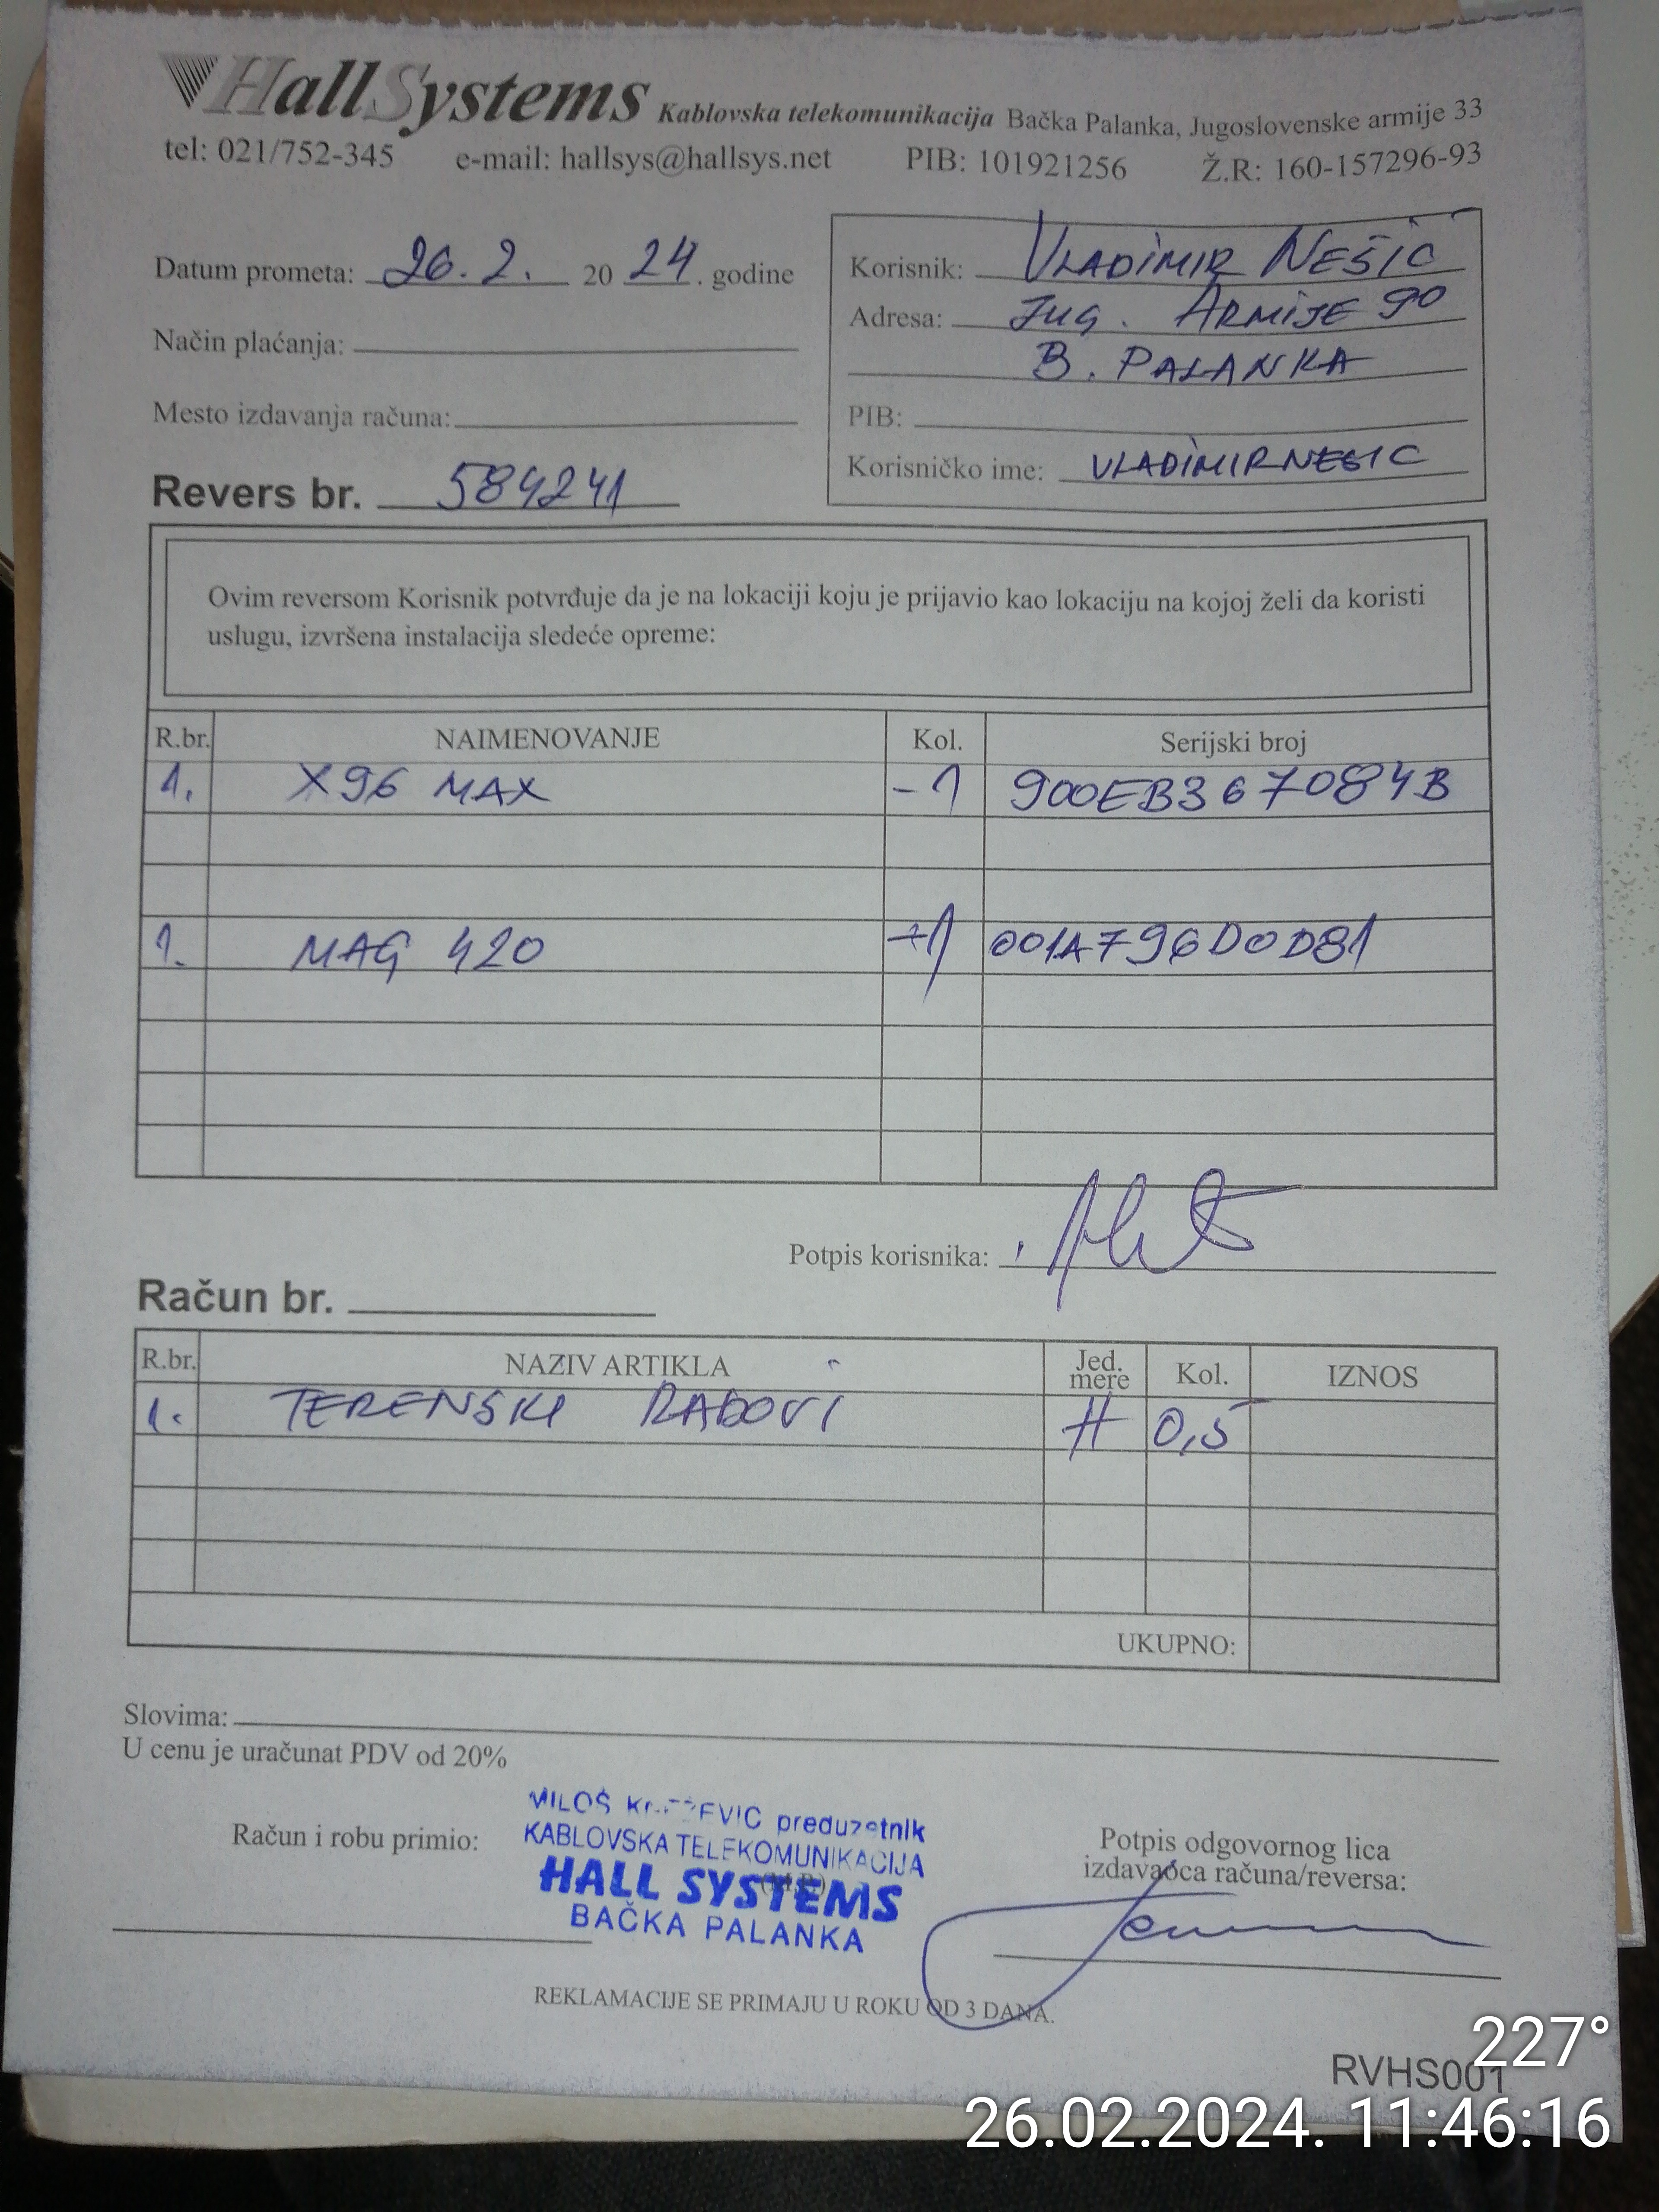 HallSystems Kablovska telekomunikacija Bačka Palanka, Jugoslovenske armije 33
tel: 021/752-345 e-mail: hallsys@hallsys.net PIB: 101921256 Ž.R: 160-157296-93
Datum prometa: 26. 2. 20 24. godine
Način plaćanja:
Mesto izdavanja računa:
Revers br. 584241
Korisnik: VLADIMIR NEŠIĆ
Adresa: JUG. ARMIJE 90
B. PALANKA
PIB:
Korisničko ime: VLADIMIRNESIC
Ovim reversom Korisnik potvrđuje da je na lokaciji koju je prijavio kao lokaciju na kojoj želi da koristi
uslugu, izvršena instalacija sledeće opreme:
R.br. NAIMENOVANJE Kol. Serijski broj
1. X96 MAX -1 900EB367084B
1. MAG 420 +1 001A796D0D81
Potpis korisnika:
Račun br.
R.br. NAZIV ARTIKLA Jed. mere Kol. IZNOS
1. TERENSKI RADOVI H 0,5
UKUPNO:
Slovima:
U cenu je uračunat PDV od 20%
Račun i robu primio:
MILOŠ preduzetnik
KABLOVSKA TELEKOMUNIKACIJA
HALL SYSTEMS
BAČKA PALANKA
Potpis odgovornog lica
izdavaoca računa/reversa:
REKLAMACIJE SE PRIMAJU U ROKU OD 3 DANA.
227°
RVHS001
26.02.2024. 11:46:16